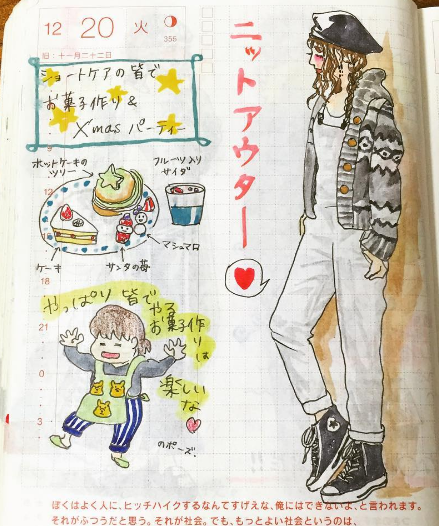 12 20 火
355
旧:十一月二十二日
ショートケアの皆で
お菓子作り&
X'mas パーティー
ニットアウター
ホットケーキの
ツリー
フルーツ入り
サイダー
ケーキ
サンタの苺
マシュマロ
9
12
18
21
0
3
やっぱり皆で
お菓子作
りは
楽しい
な
のポーズ.
ぼくはよく人に、ヒッチハイクするなんてすげえな、俺にはできないよ、と言われます。
それがふつうだと思う。それが社会。でも、もっとよい社会というのは、